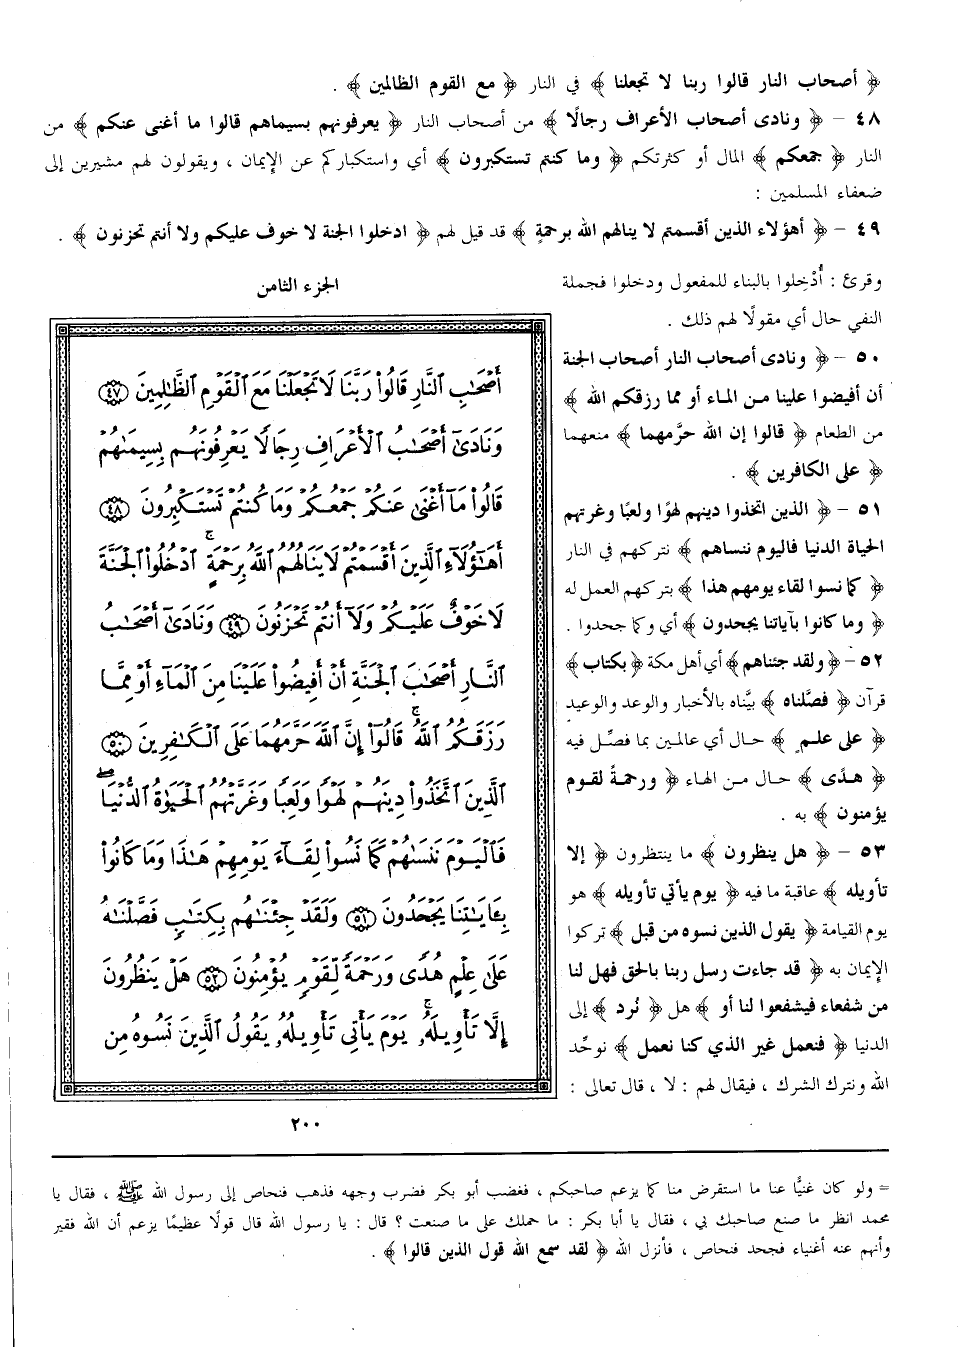 ﴿ أصحاب النار قالوا ربنا لا تجعلنا ﴾ في النار ﴿ مع القوم الظالمين ﴾ .
٤٨ – ﴿ ونادى أصحاب الأعراف رجالًا ﴾ من أصحاب النار ﴿ يعرفونهم بسيماهم قالوا ما أغنى عنكم ﴾ من
النار ﴿ جمعكم ﴾ المال أو كثرتكم ﴿ وما كنتم تستكبرون ﴾ أي واستكباركم عن الإيمان ، ويقولون لهم مشيرين إلى
ضعفاء المسلمين :
٤٩ – ﴿ أهؤلاء الذين أقسمتم لا ينالهم الله برحمةٍ ﴾ قد قيل لهم ﴿ ادخلوا الجنة لا خوف عليكم ولا أنتم تحزنون ﴾ .
وقرئ : أُدْخِلوا بالبناء للمفعول ودخلوا فجملة
النفي حال أي مقولًا لهم ذلك .
٥٠ – ﴿ ونادى أصحاب النار أصحاب الجنة
أن أفيضوا علينا من الماء أو مما رزقكم الله ﴾
من الطعام ﴿ قالوا إن الله حرَّمهما ﴾ منعهما
﴿ على الكافرين ﴾ .
٥١ – ﴿ الذين اتخذوا دينهم لهوًا ولعبًا وغرتهم
الحياة الدنيا فاليوم ننساهم ﴾ نتركهم في النار
﴿ كما نسوا لقاء يومهم هذا ﴾ بتركهم العمل له
﴿ وما كانوا بآياتنا يجحدون ﴾ أي وكما جحدوا .
٥٢ – ﴿ ولقد جئناهم ﴾ أي أهل مكة ﴿ بكتاب ﴾
قرآن ﴿ فصَّلناه ﴾ بيَّناه بالأخبار والوعد والوعيد
﴿ على علم ﴾ حال أي عالمين بما فصِّل فيه
﴿ هدًى ﴾ حال من الهاء ﴿ ورحمةً لقوم
يؤمنون ﴾ به .
٥٣ – ﴿ هل ينظرون ﴾ ما ينتظرون ﴿ إلا
تأويله ﴾ عاقبة ما فيه ﴿ يوم يأتي تأويله ﴾ هو
يوم القيامة ﴿ يقول الذين نسوه من قبل ﴾ تركوا
الإيمان به ﴿ قد جاءت رسل ربنا بالحق فهل لنا
من شفعاء فيشفعوا لنا أو ﴾ هل ﴿ نُرد ﴾ إلى
الدنيا ﴿ فنعمل غير الذي كنا نعمل ﴾ نوحِّد
الله ونترك الشرك ، فيقال لهم : لا ، قال تعالى :
الجزء الثامن
أَصْحَٰبِ ٱلنَّارِ قَالُوا۟ رَبَّنَا لَا تَجْعَلْنَا مَعَ ٱلْقَوْمِ ٱلظَّٰلِمِينَ ٤٧
وَنَادَىٰٓ أَصْحَٰبُ ٱلْأَعْرَافِ رِجَالًا يَعْرِفُونَهُم بِسِيمَىٰهُمْ
قَالُوا۟ مَآ أَغْنَىٰ عَنكُمْ جَمْعُكُمْ وَمَا كُنتُمْ تَسْتَكْبِرُونَ ٤٨
أَهَٰٓؤُلَآءِ ٱلَّذِينَ أَقْسَمْتُمْ لَا يَنَالُهُمُ ٱللَّهُ بِرَحْمَةٍ ۚ ٱدْخُلُوا۟ ٱلْجَنَّةَ
لَا خَوْفٌ عَلَيْكُمْ وَلَآ أَنتُمْ تَحْزَنُونَ ٤٩ وَنَادَىٰٓ أَصْحَٰبُ
ٱلنَّارِ أَصْحَٰبَ ٱلْجَنَّةِ أَنْ أَفِيضُوا۟ عَلَيْنَا مِنَ ٱلْمَآءِ أَوْ مِمَّا
رَزَقَكُمُ ٱللَّهُ ۚ قَالُوٓا۟ إِنَّ ٱللَّهَ حَرَّمَهُمَا عَلَى ٱلْكَٰفِرِينَ ٥٠
ٱلَّذِينَ ٱتَّخَذُوا۟ دِينَهُمْ لَهْوًا وَلَعِبًا وَغَرَّتْهُمُ ٱلْحَيَوٰةُ ٱلدُّنْيَا ۚ
فَٱلْيَوْمَ نَنسَىٰهُمْ كَمَا نَسُوا۟ لِقَآءَ يَوْمِهِمْ هَٰذَا وَمَا كَانُوا۟
بِـَٔايَٰتِنَا يَجْحَدُونَ ٥١ وَلَقَدْ جِئْنَٰهُم بِكِتَٰبٍ فَصَّلْنَٰهُ
عَلَىٰ عِلْمٍ هُدًى وَرَحْمَةً لِّقَوْمٍ يُؤْمِنُونَ ٥٢ هَلْ يَنظُرُونَ
إِلَّا تَأْوِيلَهُۥ ۚ يَوْمَ يَأْتِى تَأْوِيلُهُۥ يَقُولُ ٱلَّذِينَ نَسُوهُ مِن
٢٠٠
= ولو كان غنيًّا عنا ما استقرض منا كما يزعم صاحبكم ، فغضب أبو بكر فضرب وجهه فذهب فنحاص إلى رسول الله ﷺ ، فقال يا
محمد انظر ما صنع صاحبك بي ، فقال يا أبا بكر : ما حملك على ما صنعت ؟ قال : يا رسول الله قال قولًا عظيمًا يزعم أن الله فقير
وأنهم عنه أغنياء فجحد فنحاص ، فأنزل الله ﴿ لقد سمع الله قول الذين قالوا ﴾ .